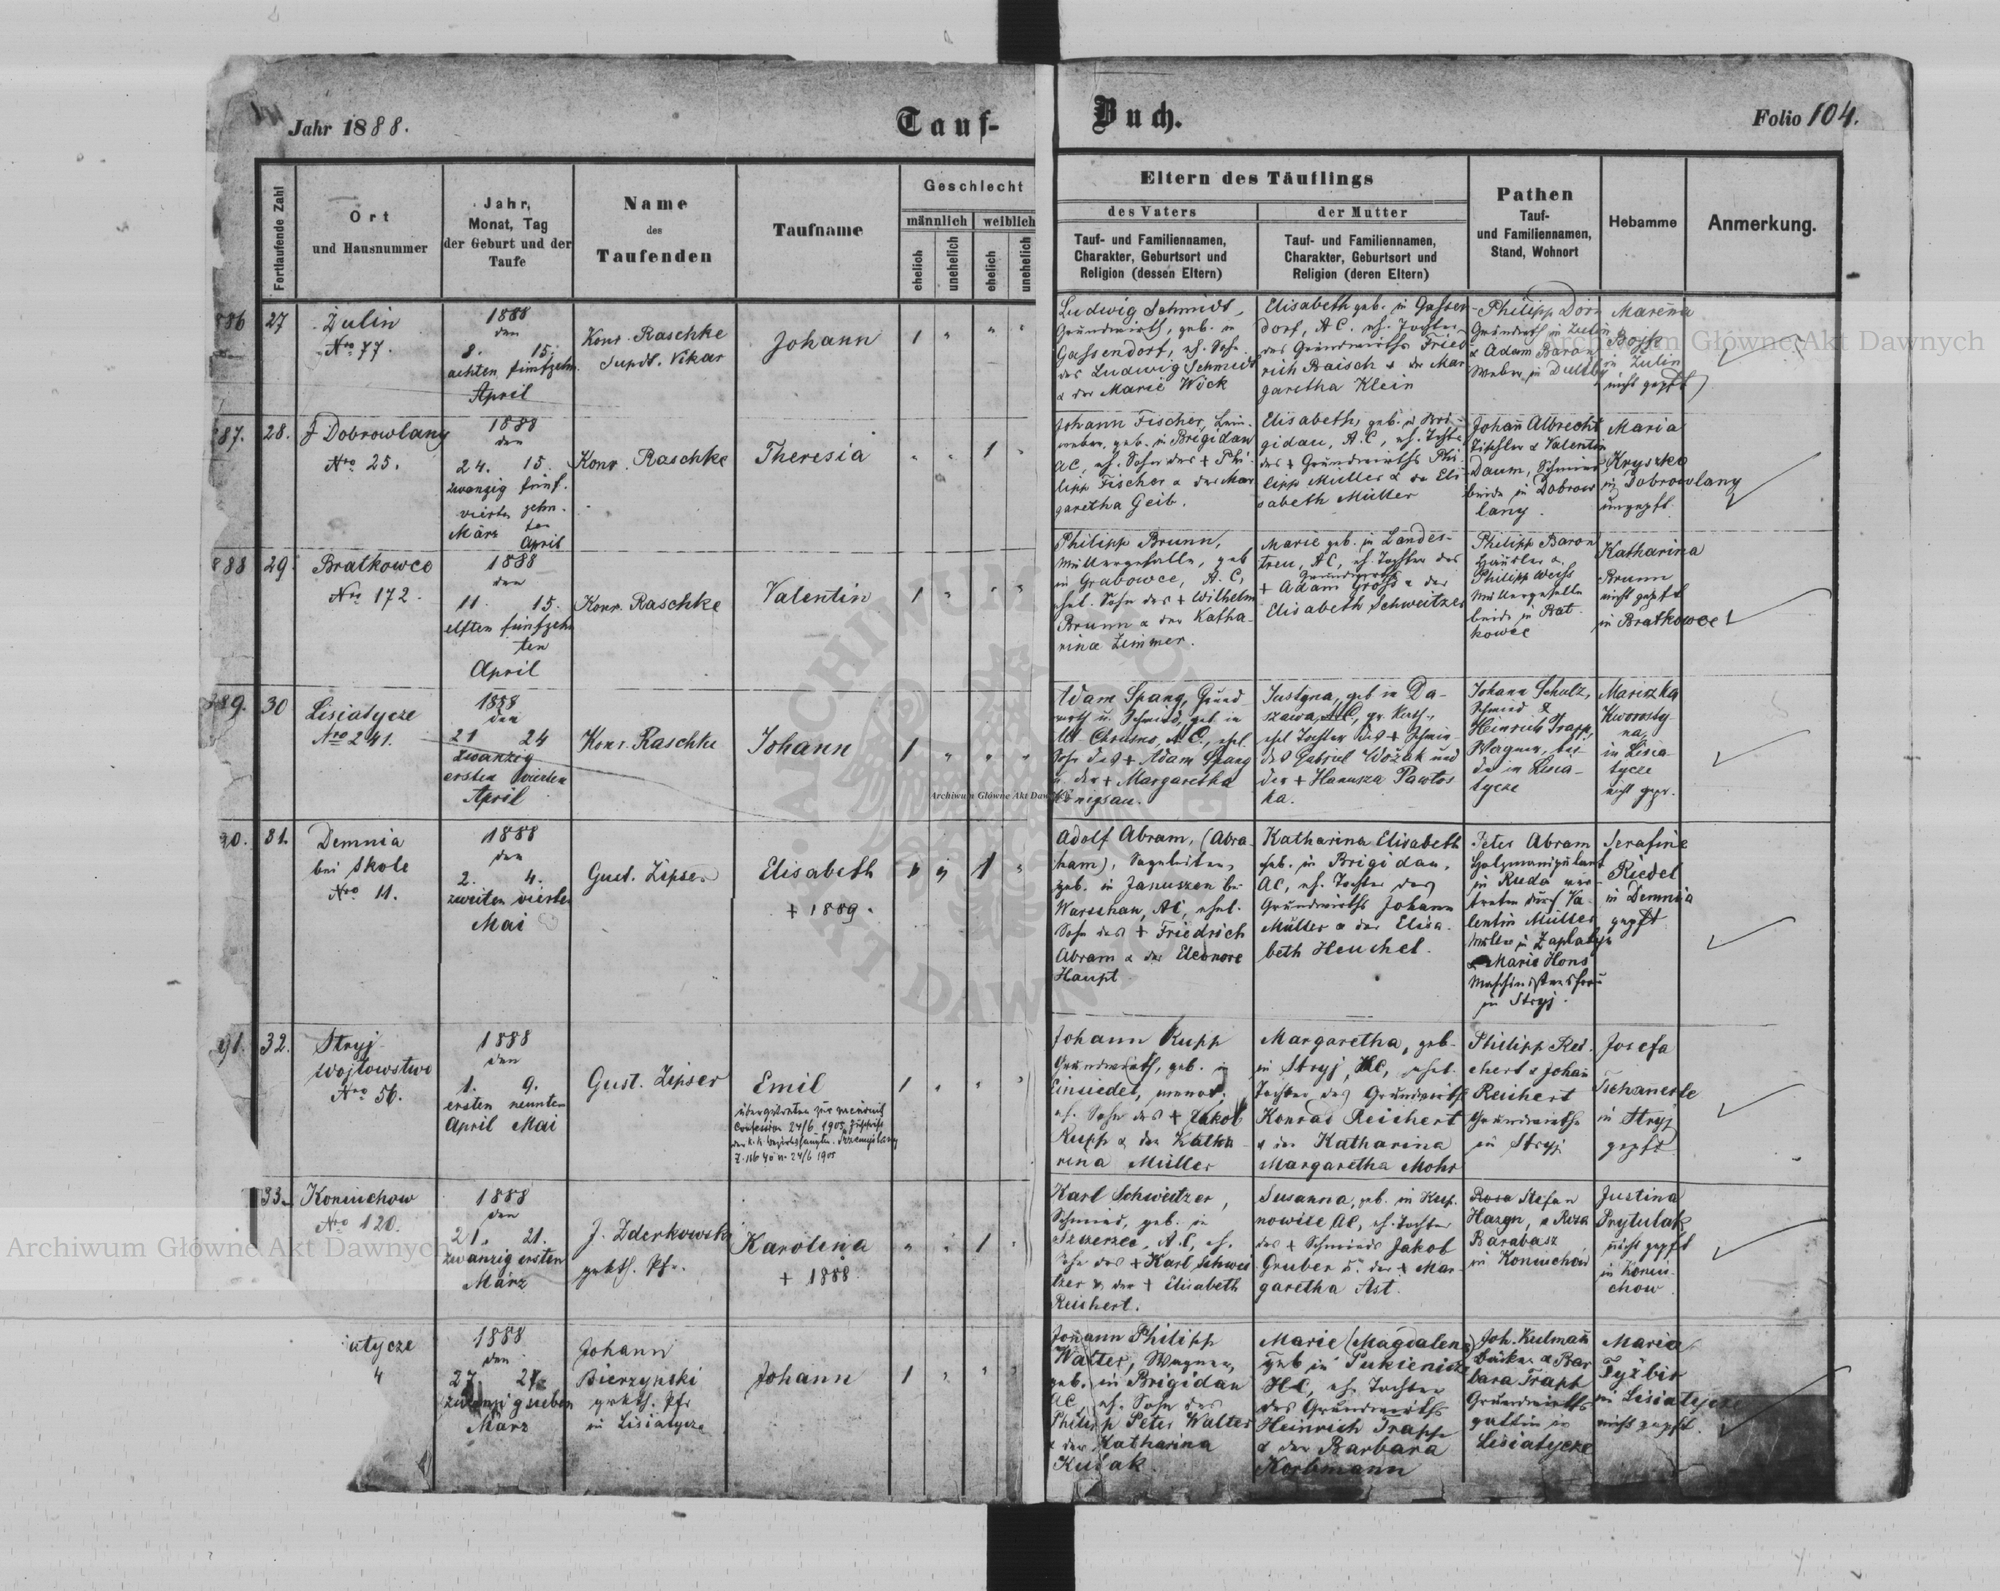 Jahr 1888.
Tauf-
Buch.
Folio 104.
Fortlaufende Zahl
Ort
und Hausnummer
Jahr,
Monat, Tag
der Geburt und der
Taufe
Name
des
Taufenden
Taufname
Geschlecht
männlich
weiblich
ehelich
unehelich
ehelich
unehelich
Eltern des Täuflings
des Vaters
der Mutter
Tauf- und Familiennamen,
Charakter, Geburtsort und
Religion (dessen Eltern)
Tauf- und Familiennamen,
Charakter, Geburtsort und
Religion (deren Eltern)
Pathen
Tauf-
und Familiennamen,
Stand, Wohnort
Hebamme
Anmerkung.
27
Zulin
Nro 77.
1888
den
8. 15.
achten fünfzehn
April
Konr. Raschke
Supdt. Vikar
Johann
1 " " "
Ludwig Schmidt,
Grundwirth, geb. in
Gassendorf, eh. Sohn
des Ludwig Schmidt
& der Marie Wick
Elisabeth geb. in Gassen-
dorf, A.C. eh. Tochter
des Grundwirths Fried-
rich Raisch & der Mar-
garetha Klein
Philipp Dorn
Grundwirth in Zulin
& Adam Baron
Weber in
Marenna
Bojko
in Zulin
nicht gepft
87. 28.
Dobrowlany
Nro 25.
1888
den
24. 15.
zwanzig fünf-
vierten zehn-
März ten
April
Konr. Raschke
Theresia
" " 1 "
Johann Fischer, Lein-
weber, geb. in Brigidau
AC, eh. Sohn des + Phi-
lipp Fischer & der Mar
garetha Geib.
Elisabeth, geb. in Bri-
gidau, A.C, eh. Tochter
des + Grundwirths Phi-
lipp Müller & der Eli
sabeth Müller
Johann Albrecht
Tischler & Valentin
Daum, Schmied
beide in Dobrow
lany.
Maria
Kryszko
in Dobrowlany
ungepft.
88 29
Bratkowce
Nro 172.
1888
den
11. 15.
elften fünfzehn
ten
April
Konr. Raschke
Valentin
1 " " "
Philipp Brunn,
Müllergeselle, geb
in Grabowce, A.C,
ehel. Sohn des + Wilhelm
Brunn & der Katha-
rina Zimmer.
Marie geb. in Landes-
treu, AC, eh. Tochter des
Grundwirths
+ Adam Gross & der
Elisabeth Schweitzer
Philipp Baron
Häusler &
Philipp Weiss
Müllergeselle
beide in Brat-
kowce
Katharina
Brunn
nicht gepft
in Bratkowce
89. 30
Lisiatycze
Nro 241.
1888
den
21 24
zwanzig
ersten vierten
April
Konr. Raschke
Johann
1 " " "
Adam Spang, Grund
wirth u. Schmied, geb. in
Ut. Chrusno, A.C., ehel.
Sohn des + Adam Spang
u. der + Margaretha
Königsau.
Justyna, geb in Da-
szawa, gr. Kath.,
ehel Tochter des + Schmie-
des Gabriel Wożak und
der + Hanusza Pawlos
ka.
Johann Schulz,
Schmied &
Heinrich Trapp,
Wagner, bei-
de in Lisia-
tycze
Mariszka
Kworosty-
na,
in Lisia-
tycze
nicht gepr.
90. 31.
Demnia
bei Skole
Nro 11.
1888
den
2. 4.
zweiten vierten
Mai
Gust. Zipser
Elisabeth
+ 1889.
" " 1 "
Adolf Abram, (Abra
ham), Sageleiter,
geb. in Januszen bei
Warschau, AC, ehel.
Sohn des + Friedrich
Abram & der Eleonore
Haupt
Katharina Elisabeth
geb. in Brigidau,
AC, eh. Tochter des
Grundwirths Johann
Müller & der Elisa-
beth Heuchel.
Peter Abram
Holzmanipulant
in Ruda ver-
treten durch Va-
lentin Müller
Müller in Zaplatyn
& Marie Hons
Maschinistensfrau
in Stryj.
Serafine
Riedel
in Demnia
gepft
91. 32.
Stryj
Wojtowstwo
Nro 56.
1888
den
1. 9.
ersten neunten
April Mai
Gust. Zipser
Emil
1 " " "
Johann Rupp
Grundwirth, geb. in
Einsiedel,
eh. Sohn des + Jakob
Rupp & der Katha-
rina Müller
Margaretha, geb.
in Stryj, HC, ehel.
Tochter des Grundwirths
Konrad Reichert
& der Katharina
Margaretha Mohr
Philipp Rei-
chert & Johann
Reichert
Grundwirthe
in Stryj
Josefa
Tschanerle
in Stryj
gepft
33.
Koniuchow
Nro 120.
1888
den
21. 21.
zwanzig ersten
März
J. Zderkowski
grkth. Pfr.
Karolina
+ 1888
" " 1 "
Karl Schweitzer,
Schmied, geb. in
Szczerzec, A.C, eh.
Sohn des + Karl Schwei
tzer & der + Elisabeth
Reichert.
Susanna, geb. in Kup-
nowice AC, eh. Tochter
des + Schmieds Jakob
Gruber u. der + Mar-
garetha Ast.
Stefan
Hazgn, & Roza
Barabasz
in Koniuchow
Justina
Prytulak
nicht gepft
in Koniu-
chow
utycze
4
1888
den
27 27
zwanzig sieben
März
Johann
Bierzynski
grkth. Pfr
in Lisiatycze
Johann
1 " " "
Johann Philipp
Walter, Wagner,
geb. in Brigidau
AC, eh. Sohn des
Philipp Peter Walter
& der Katharina
Kusak.
Marie (Magdalena)
geb in Pukienicze
HC, eh. Tochter
des Grundwirths
Heinrich Trapp
& der Barbara
Korbmann
Joh. Kulmann
Bäcker & Bar
bara Trapp
Grundwirths
gattin in
Lisiatycze
Maria
Tyżbir
in Lisiatycze
nicht gepft.
Archiwum Główne Akt Dawnych
Archiwum Główne Akt Dawnych
Archiwum Główne Akt Dawnych